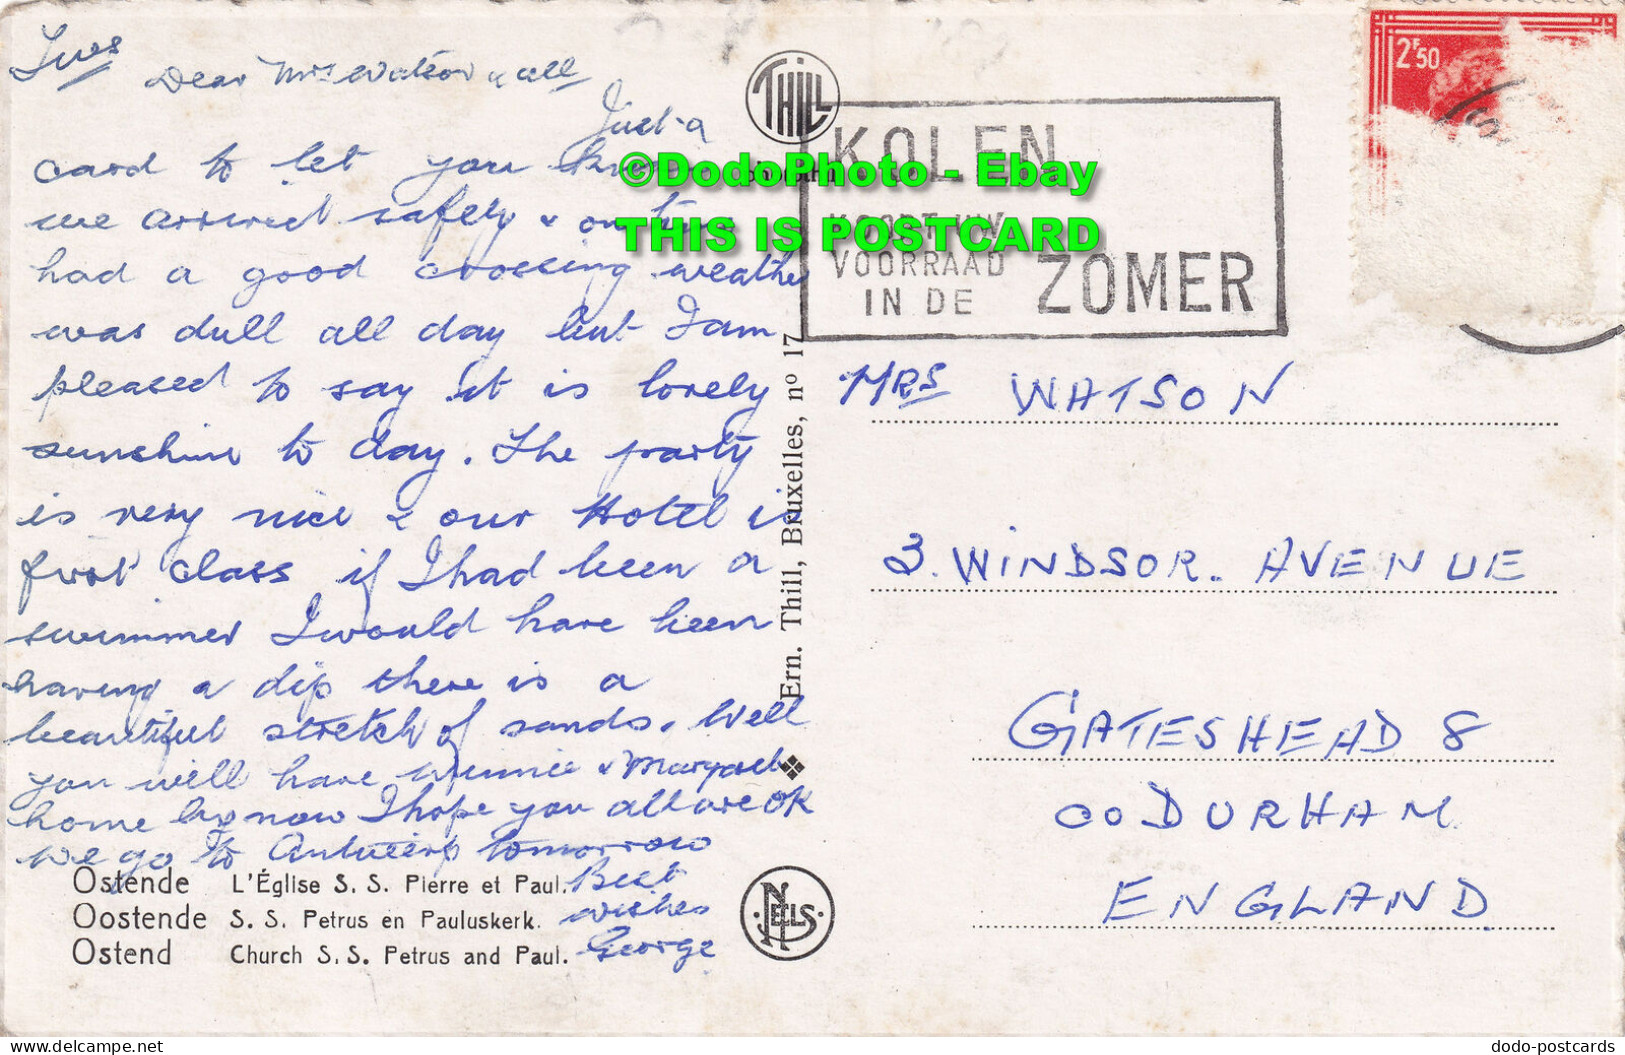 Tues
Dear Mrs Watson & all
Just a
card to let you know
we arrived safely & on time
had a good crossing weather
was dull all day but I am
pleased to say it is lovely
sunshine to day. The party
is very nice & our Hotel is
first class if I had been a
swimmer I would have been
having a dip there is a
beautiful stretch of sands. Well
you will have Winnie & Margaret
home by now I hope you all are OK
We go to Antwerp tomorrow
Best
wishes
George
Ostende L'Église S. S. Pierre et Paul.
Oostende S. S. Petrus en Pauluskerk.
Ostend Church S. S. Petrus and Paul.
THILL
Ern. Thill, Bruxelles, nº 17
NELS
KOLEN
KOOPT UW
VOORRAAD
IN DE ZOMER
2F50
MRS WATSON
3. WINDSOR. AVENUE
GATESHEAD 8
CO DURHAM
ENGLAND
©DodoPhoto - Ebay
THIS IS POSTCARD
www.delcampe.net
dodo-postcards